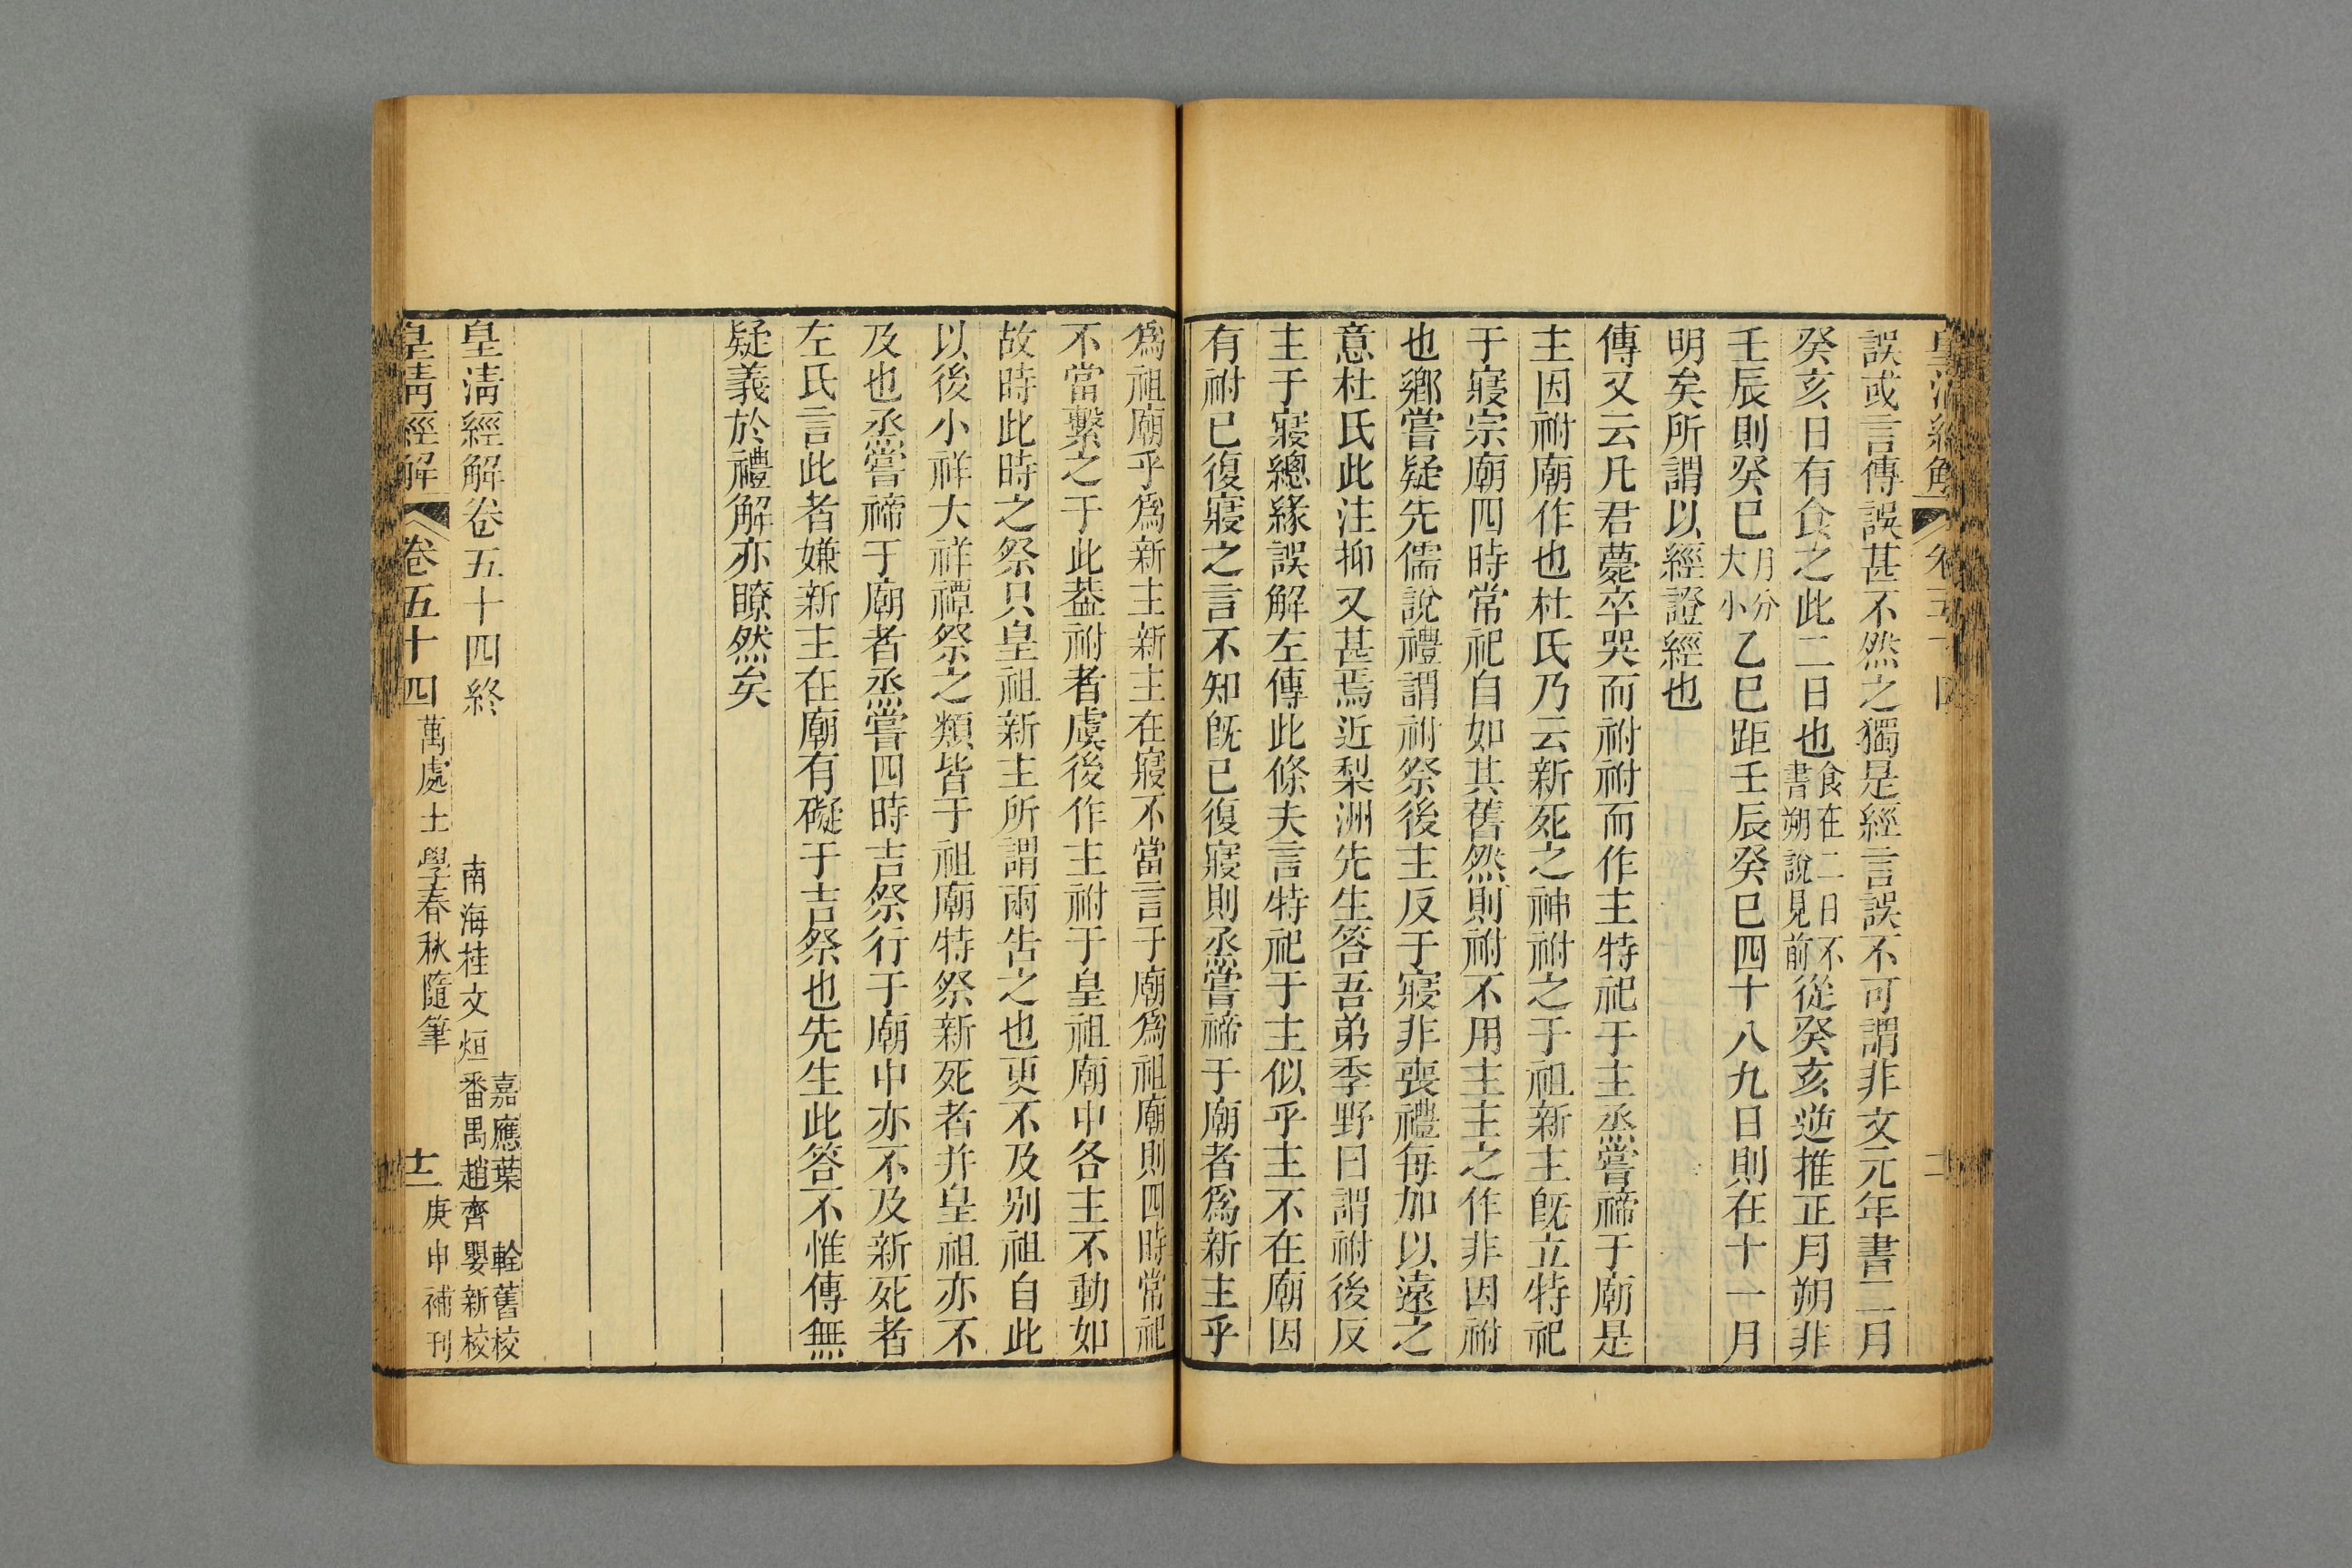 誤或言傳誤甚不然之獨是經言誤不可謂非文元年書二月
癸亥日有食之此二日也食在二日不書朔說見前從癸亥逆推正月朔非
壬辰則癸巳月分大小乙巳距壬辰癸巳四十八九日則在十一月
明矣所謂以經證經也
傳又云凡君薨卒哭而祔祔而作主特祀于主烝嘗禘于廟是
主因祔廟作也杜氏乃云新死之神祔之于祖新主旣立特祀
于寢宗廟四時常祀自如其舊然則祔不用主主之作非因祔
也鄉嘗疑先儒說禮謂祔祭後主反于寢非喪禮每加以遠之
意杜氏此注抑又甚焉近梨洲先生答吾弟季野曰謂祔後反
主于寢總緣誤解左傳此條夫言特祀于主似乎主不在廟因
有祔已復寢之言不知旣已復寢則烝嘗禘于廟者爲新主乎
爲祖廟乎爲新主新主在寢不當言于廟爲祖廟則四時常祀
不當繫之于此葢祔者虞後作主祔于皇祖廟中各主不動如
故時此時之祭只皇祖新主所謂兩告之也更不及別祖自此
以後小祥大祥禫祭之類皆于祖廟特祭新死者并皇祖亦不
及也烝嘗禘于廟者烝嘗四時吉祭行于廟中亦不及新死者
左氏言此者嫌新主在廟有礙于吉祭也先生此答不惟傳無
疑義於禮解亦瞭然矣
皇淸經解卷五十四終
嘉應葉 輇舊校
南海桂文烜番禺趙齊嬰新校
皇淸經解 卷五十四 萬處士學春秋隨筆 十二 庚申補刊